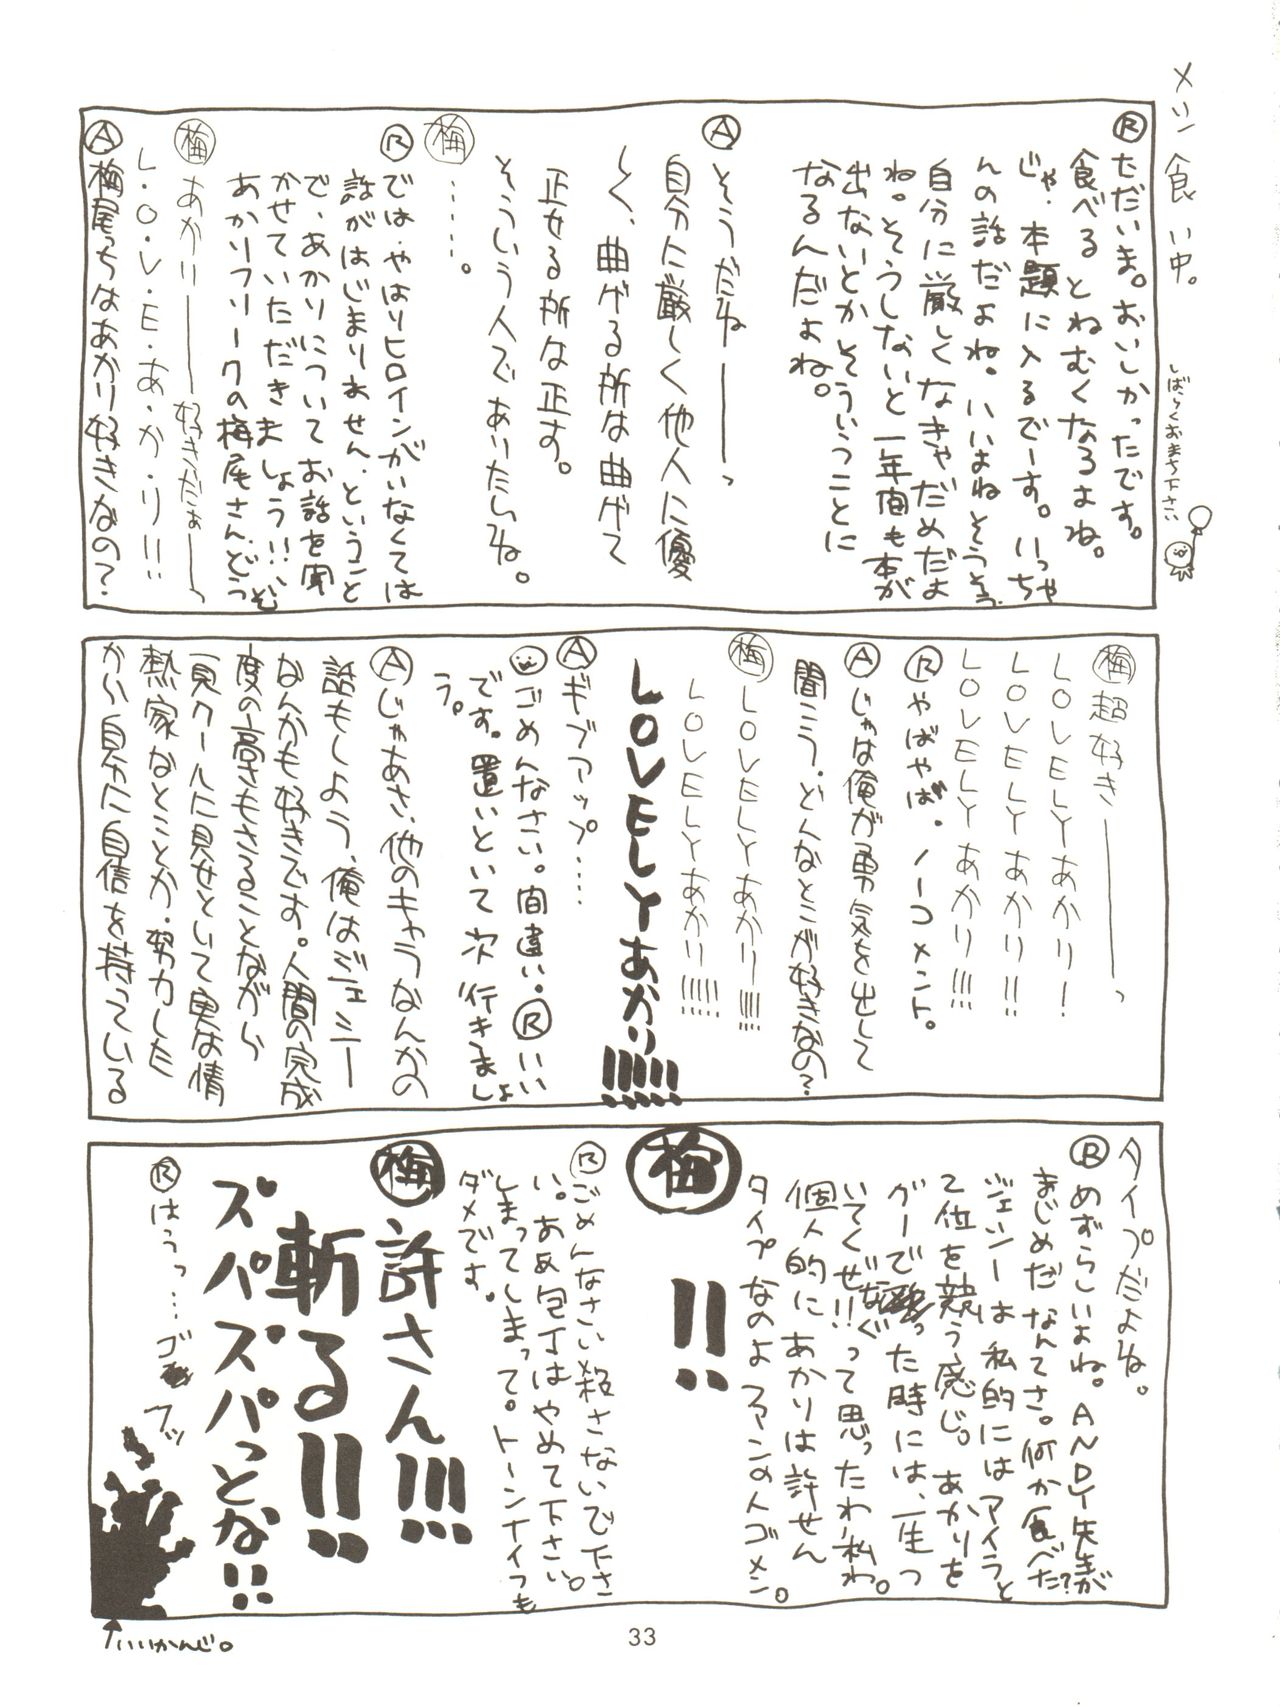 メシ食い中。
しばらくおまち下さい
Ⓡただいま。おいしかったです。
食べるとねむくなるよね。
じゃ、本題に入るでーす。いっちゃ
んの話だよね。いいよねそうそう
自分に厳しくなきゃだめだよ
ね。そうしないと一年間も本が
出ないとかそういうことに
なるんだよね。
Ⓐそうだねーーーっ
自分に厳しく他人に優
しく、曲げる所は曲げて
正せる所は正す。
そういう人でありたいね。
㊙梅……。
Ⓡでは、やはりヒロインがいなくては
話がはじまりません。ということ
で、あかりについてお話を聞
かせていただきましょう!!、
あかりフリークの梅尾さんどうぞ
梅 あかりーーー好きだぁーっ
L・O・V・E・あ・か・り!!
Ⓐ梅尾っちはあかり好きなの?
梅 超好きーーーっ
LOVELYあかり!
LOVELYあかり!!
LOVELYあかり!!!
Ⓡやばやば、ノーコメント。
Ⓐじゃは俺が勇気を出して
聞こう。どんなとこが好きなの?
梅 LOVELYあかり!!!!
LOVELYあかり!!!!!
LOVELYあかり!!!!!!
Ⓐギブアップ……
ごめんなさい。間違い。Ⓡいい
です。置いといて次行きましょ
う。
Ⓐじゃあさ、他のキャラなんかの
話もしよう、俺はジェシー
なんかも好きです。人間の完成
度の高さもさることながら
一見クールに見せといて実は情
熱家なとことか、努力した
から自分に自信を持っている
タイプだよね。
Ⓡめずらしいよね。ANDY先生が
まじめだなんてさ。何か食べた?
ジェシーは私的にはアイラと
2位を競う感じ。あかりを
ガーでなぐった時には、一生つ
いてくぜ!!って思ったわ私わ。
個人的にあかりは許せん
タイプなのよファンの人ゴメン。
梅!!
Ⓡごめんなさい殺さないで下さ
い。ああ包丁はやめて下さい。
しまってしまって。トーンナイフも
ダメです。
梅 許さん!!!
斬る!!
ズバズバっとな!!
Ⓡはうっ…ゴフッ
↑いいかんじ。
33